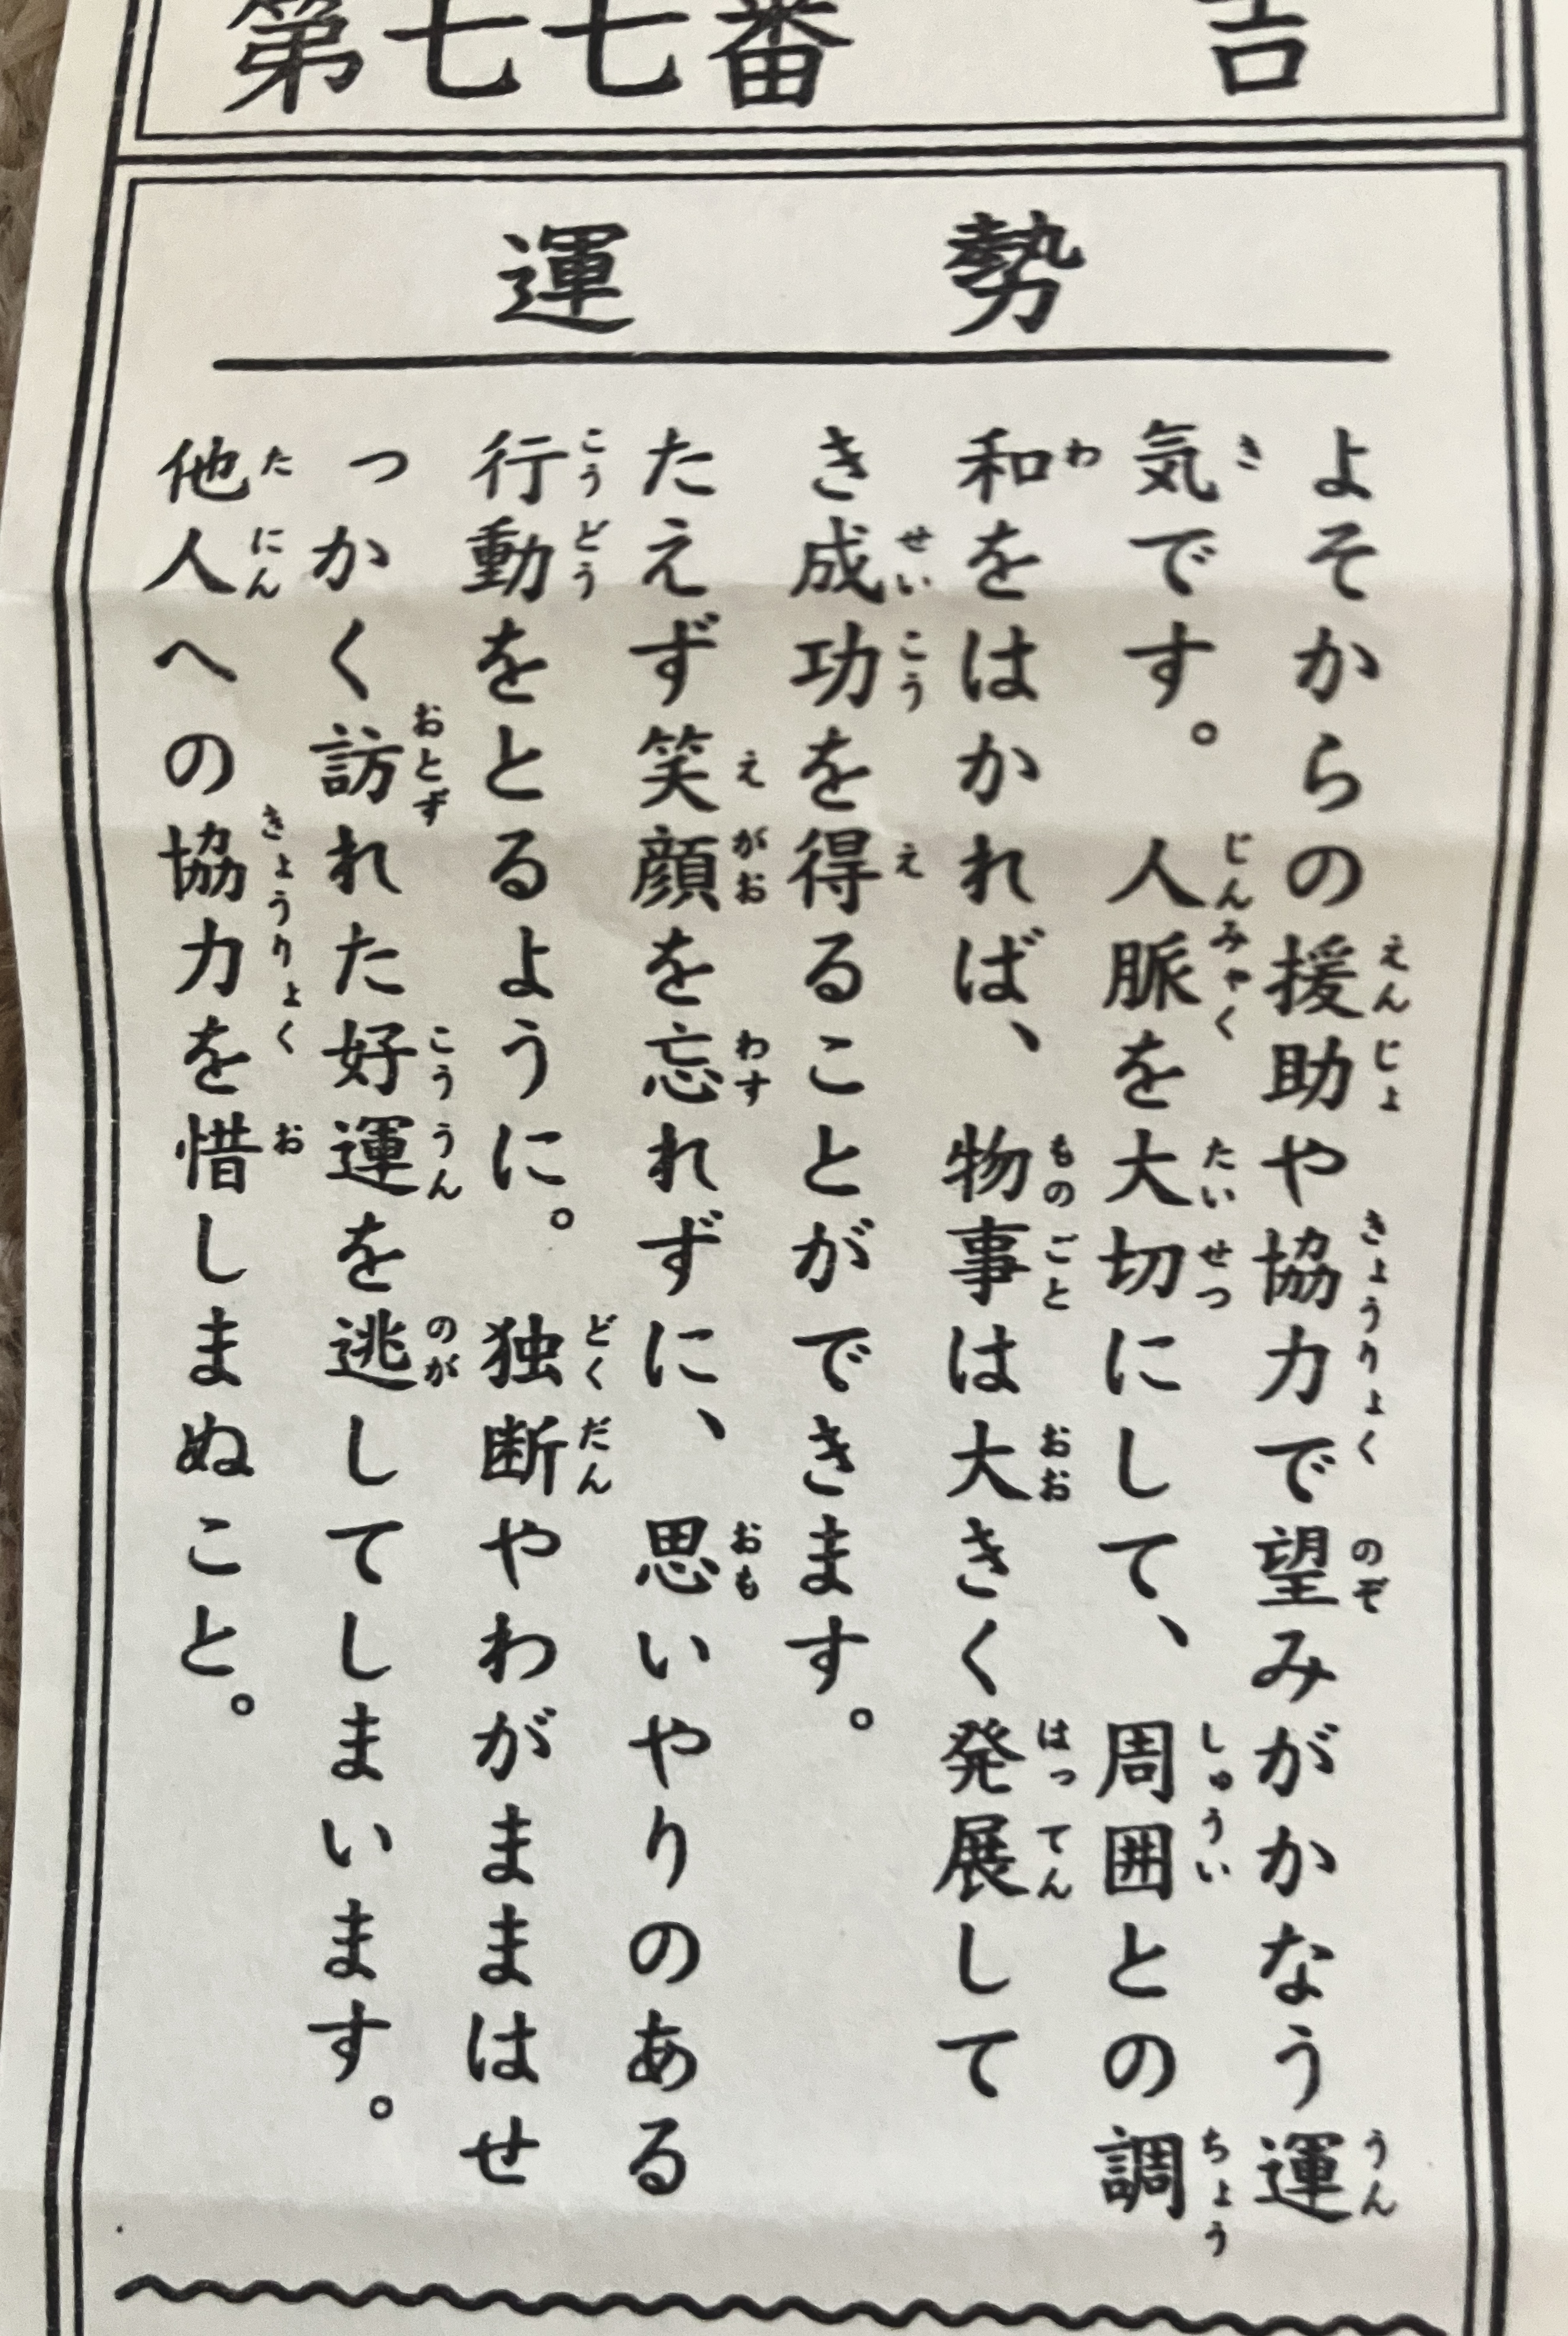 第七七番 吉
運勢
よそからの援助や協力で望みがかなう運
気です。人脈を大切にして、周囲との調
和をはかれば、物事は大きく発展して
き成功を得ることができます。
たえず笑顔を忘れずに、思いやりのある
行動をとるように。独断やわがままはせ
っかく訪れた好運を逃してしまいます。
他人への協力を惜しまぬこと。